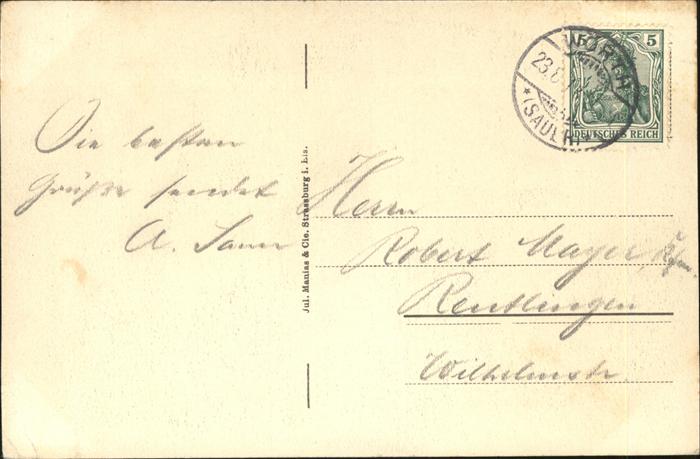 Die besten
Grüße sendet
A.
Jul. Manias & Cie. Strassburg i. Els.
WÖRTH
23.8.
* (SAUER)
5 5
DEUTSCHES REICH
Herrn
Robert Mayer, Kfm.
Reutlingen
Wilhelmstr.